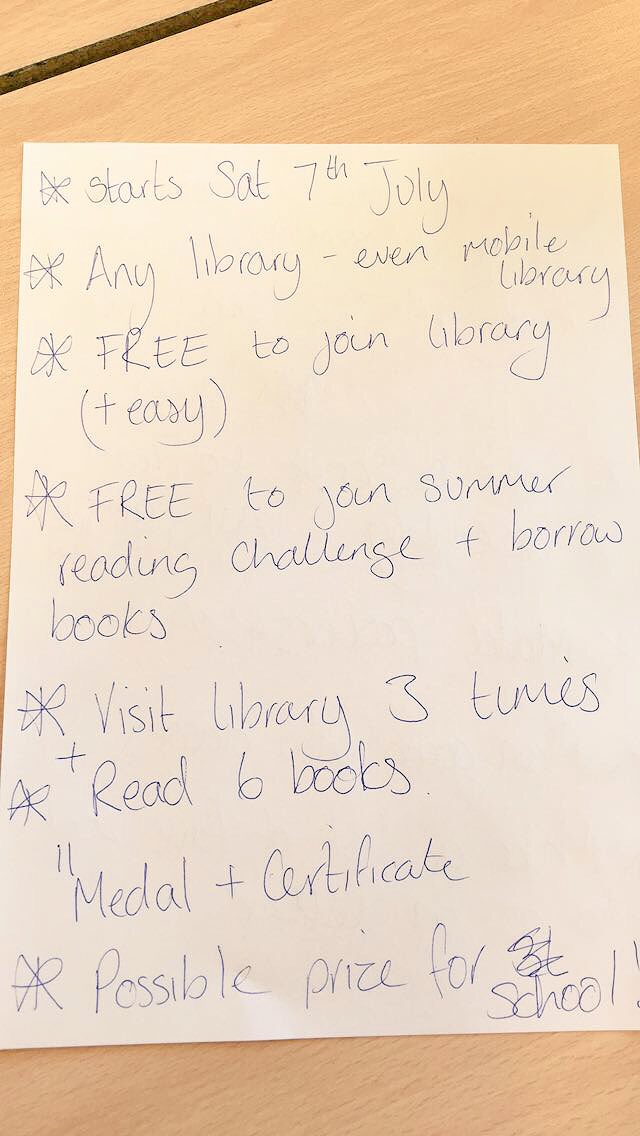 * starts Sat 7th July
* Any library - even mobile
library
* FREE to join library
(+ easy)
* FREE to join summer
reading challenge + borrow
books
* Visit library 3 times
+
* Read 6 books.
"Medal + Certificate
* Possible prize for
school!